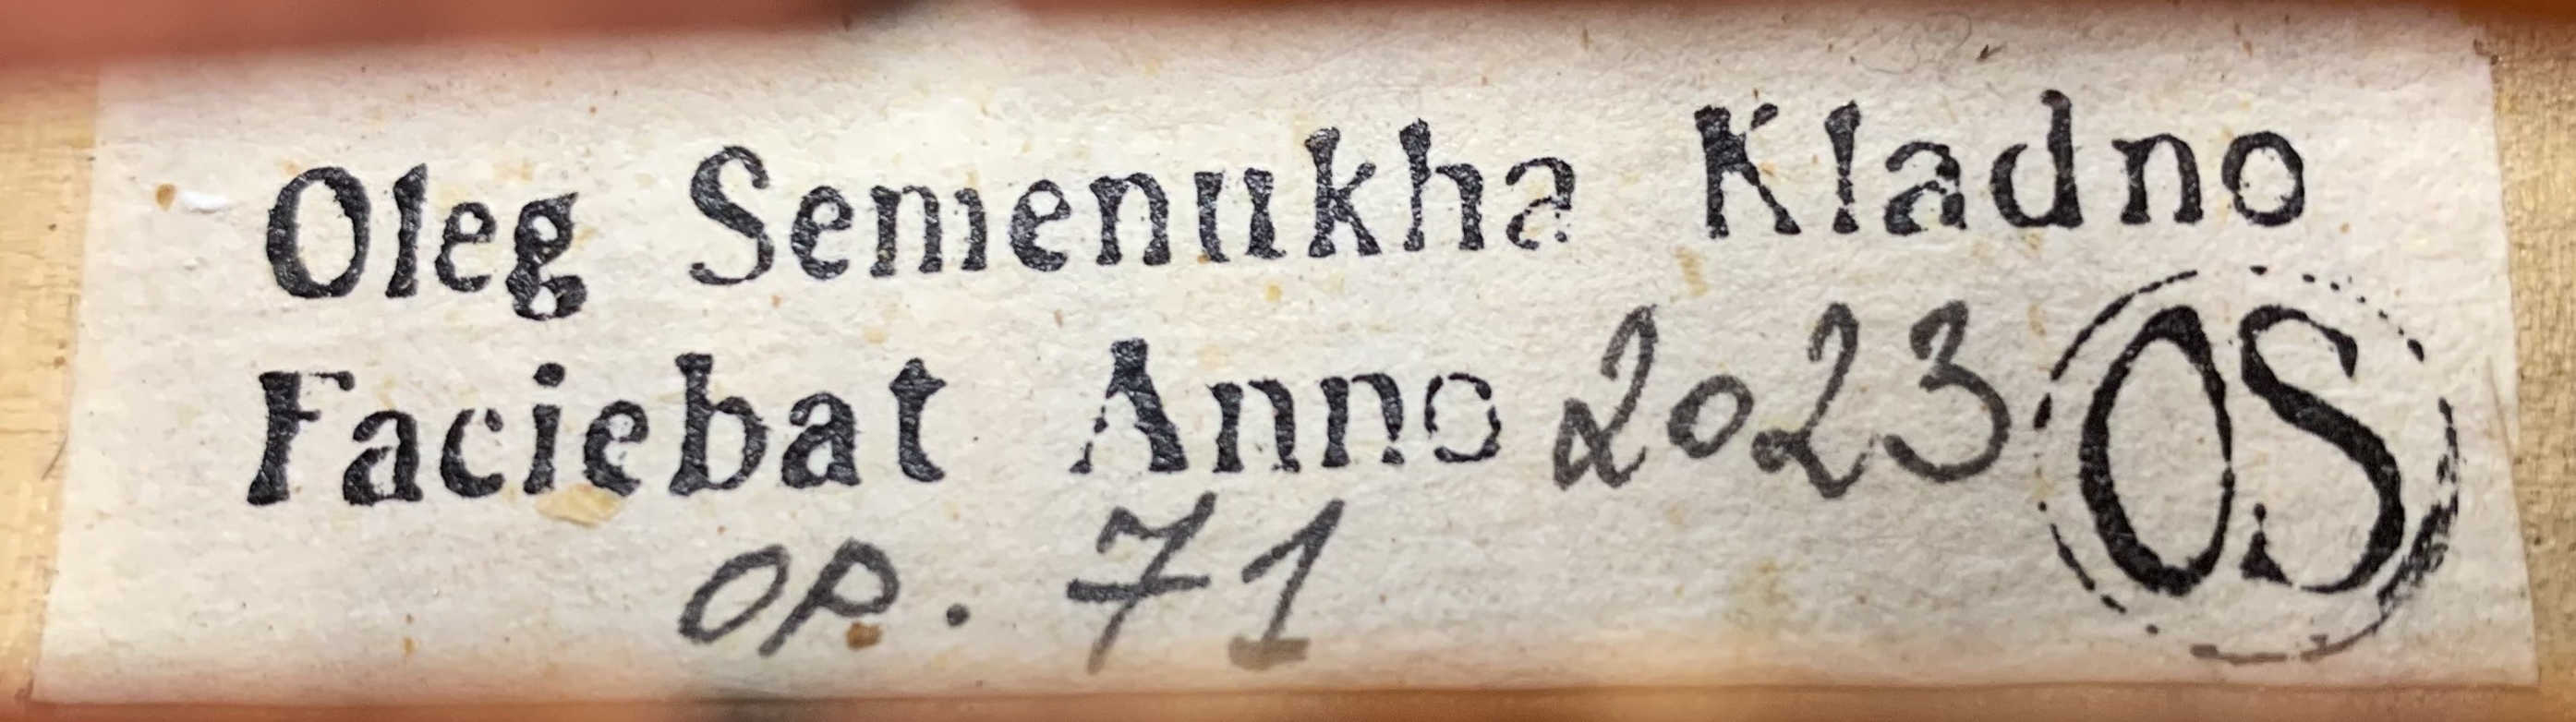 Oleg Semenukha Kladno
Faciebat Anno 2023
OS
op. 71